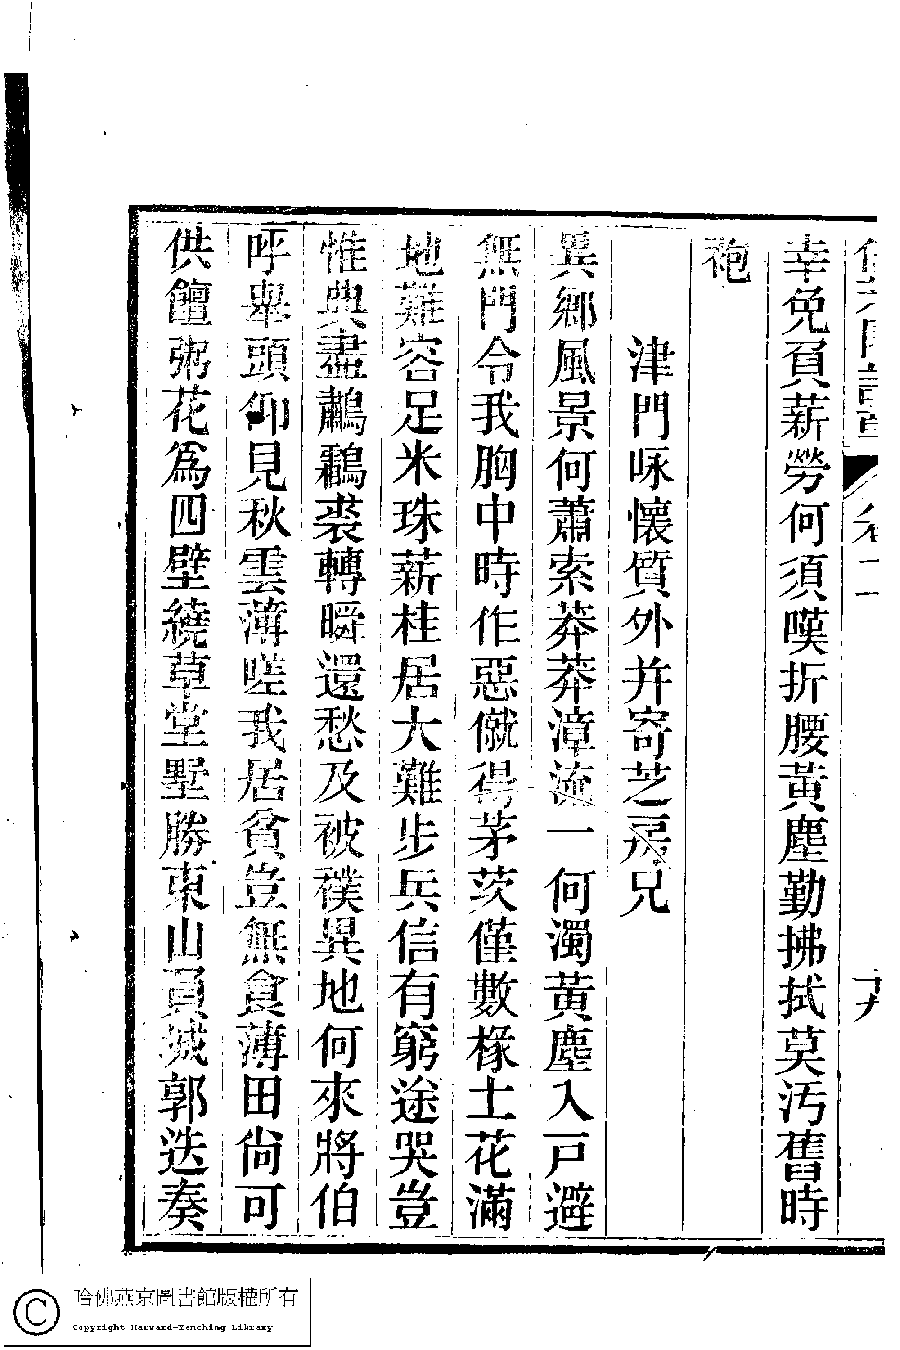 卷二
幸免負薪勞何須嘆折腰黃塵勤拂拭莫汚舊時
袍
津門咏懷質外幷寄芝房兄
異鄉風景何蕭索莽莽漳流一何濁黃塵入戸避
無門令我胸中時作惡僦得茅茨僅數椽土花滿
地難容足米珠薪桂居大難步兵信有窮途哭豈
惟典盡鷫鸘裘轉瞬還愁及被襆異地何來將伯
呼舉頭仰見秋雲薄嗟我居貧豈無食薄田尙可
供饘粥花爲四壁繞草堂墅勝東山負城郭迭奏
哈佛燕京圖書館版權所有
Copyright Harvard-Yenching Library